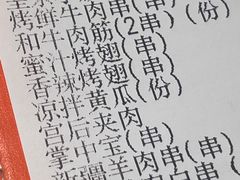 鲜牛肉串(
和牛肉筋(2串)
蜜汁烤翅(串)
香辣烤翅(串)
凉拌黄瓜(份)
宫后夹肉
掌中宝(串)
新疆羊肉串(串)